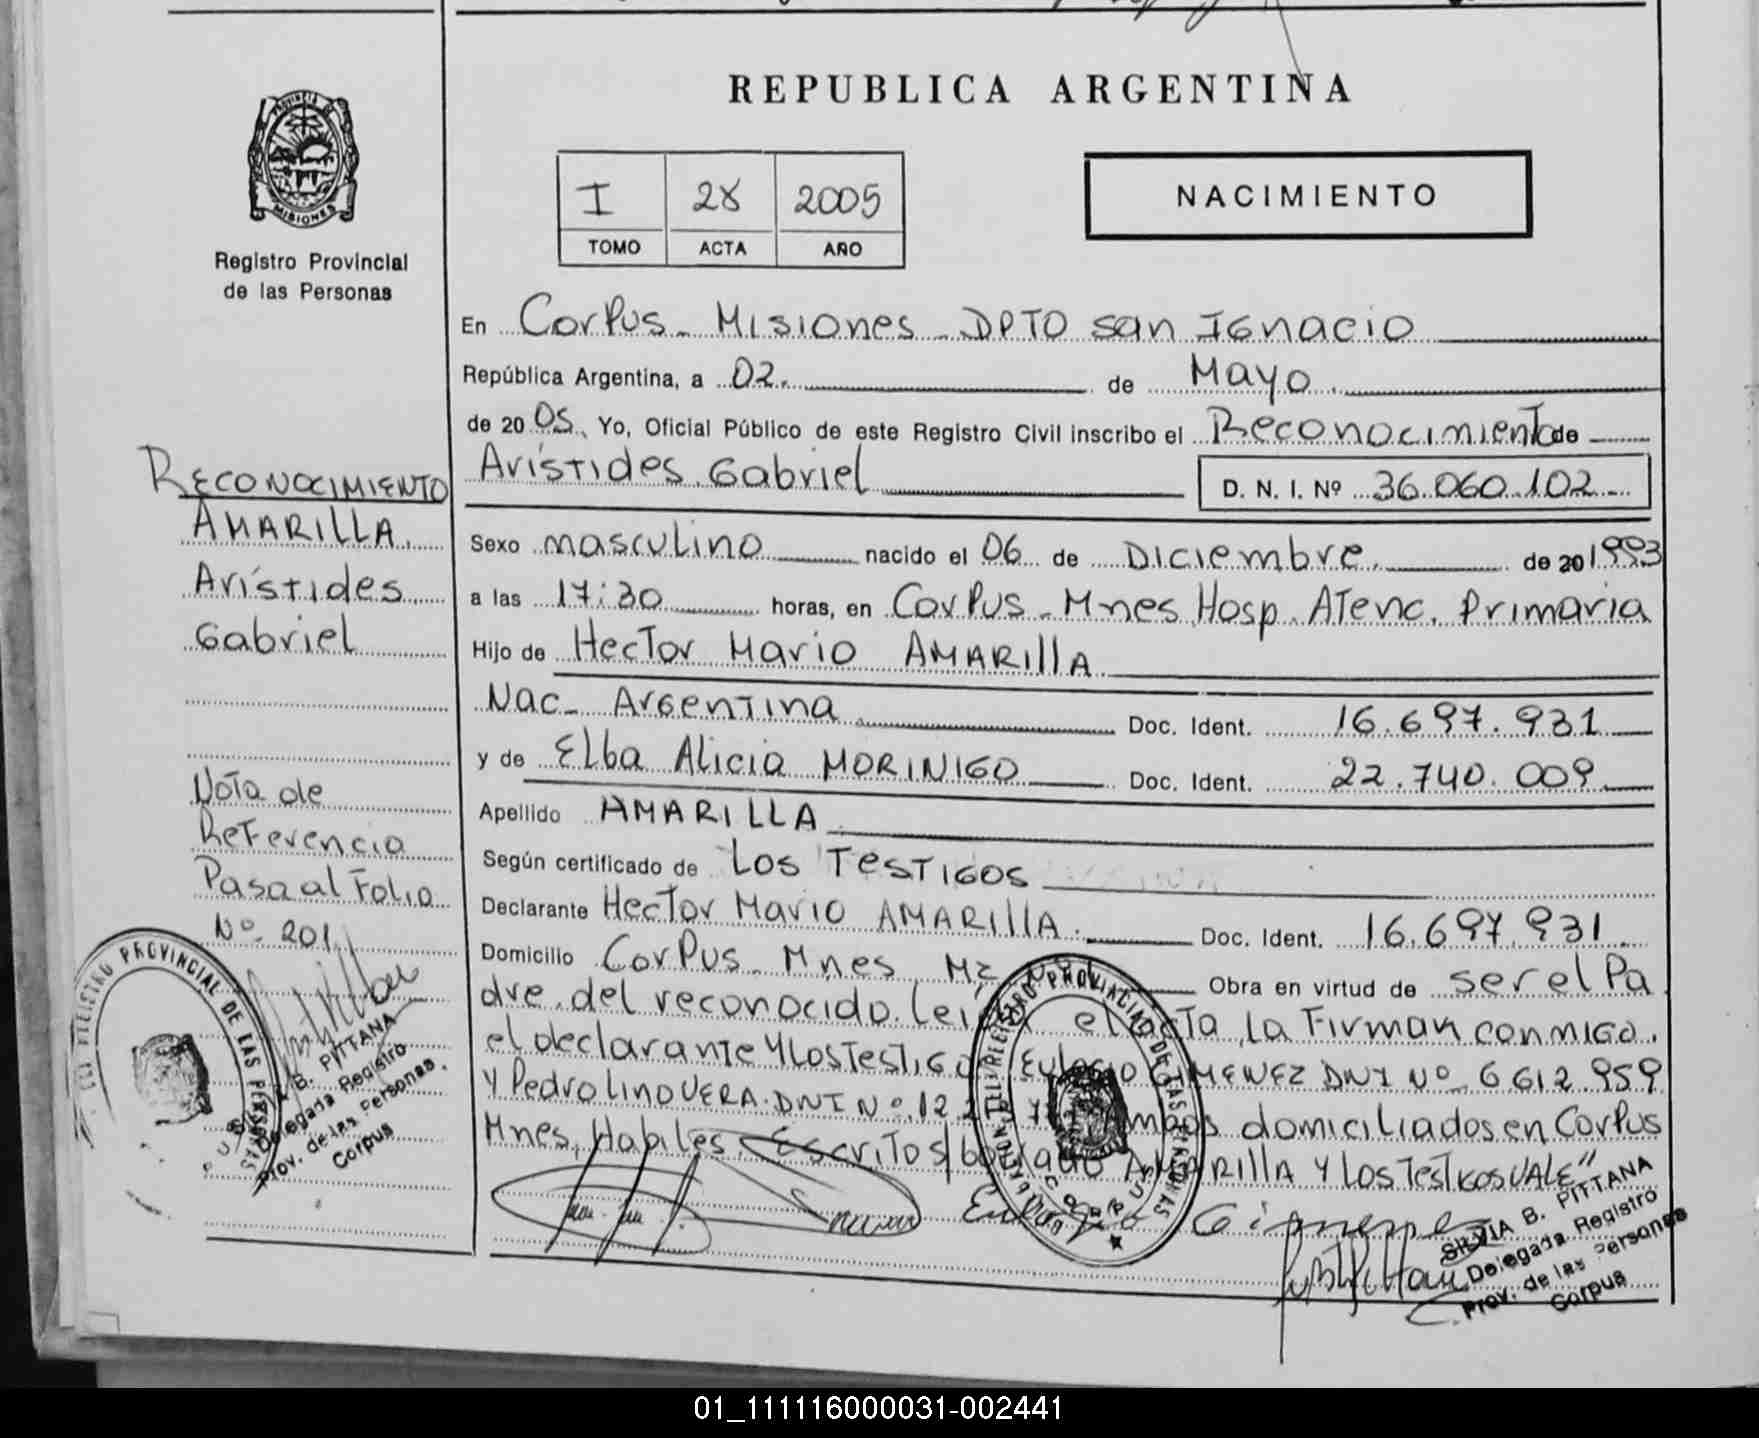 REPUBLICA ARGENTINA
PROVINCIA DE
MISIONES
Registro Provincial
de las Personas
I 28 2005
TOMO ACTA AÑO
NACIMIENTO
En Corpus - Misiones - DPTO san Ignacio
República Argentina, a 02. de Mayo
de 20 05, Yo, Oficial Público de este Registro Civil inscribo el Reconocimiento de
Arístides Gabriel
D. N. I. Nº 36.060.102
Sexo masculino nacido el 06 de Diciembre. de 20 1993
a las 17:30 horas, en Corpus - Mnes Hosp. Atenc. Primaria
Hijo de Hector Mario AMARIllA
Nac - Argentina Doc. Ident. 16.697.931
y de Elba Alicia MORINIGO Doc. Ident. 22.740.009
Apellido AMARILLA
Según certificado de Los Testigos
Declarante Hector Mario AMARIllA. Doc. Ident. 16.697.931
Domicilio Corpus - Mnes Mz Obra en virtud de ser el Pa
dre del reconocido. Leída el acta, la Firman conmigo.
el declarante y los Testigos Eulogio GIMENEZ DNI Nº 6612.959
y Pedro Lino VERA. DNI Nº 12.2 ambos domiciliados en Corpus
Mnes, Habiles. Escritos/borrado AMARIllA y los Testigos VALE"
RECONOCIMIENTO
AMARILLA
Arístides
Gabriel
Nota de
Referencia
Pasa al Folio
Nº 201
REGISTRO PROVINCIAL DE LAS PERSONAS
SILVIA B. PITTANA
Delegada Registro
Prov. de las Personas
Corpus
REGISTRO PROVINCIAL DE LAS PERSONAS
SILVIA B. PITTANA
Delegada Registro
Prov. de las Personas
Corpus
01_111116000031-002441